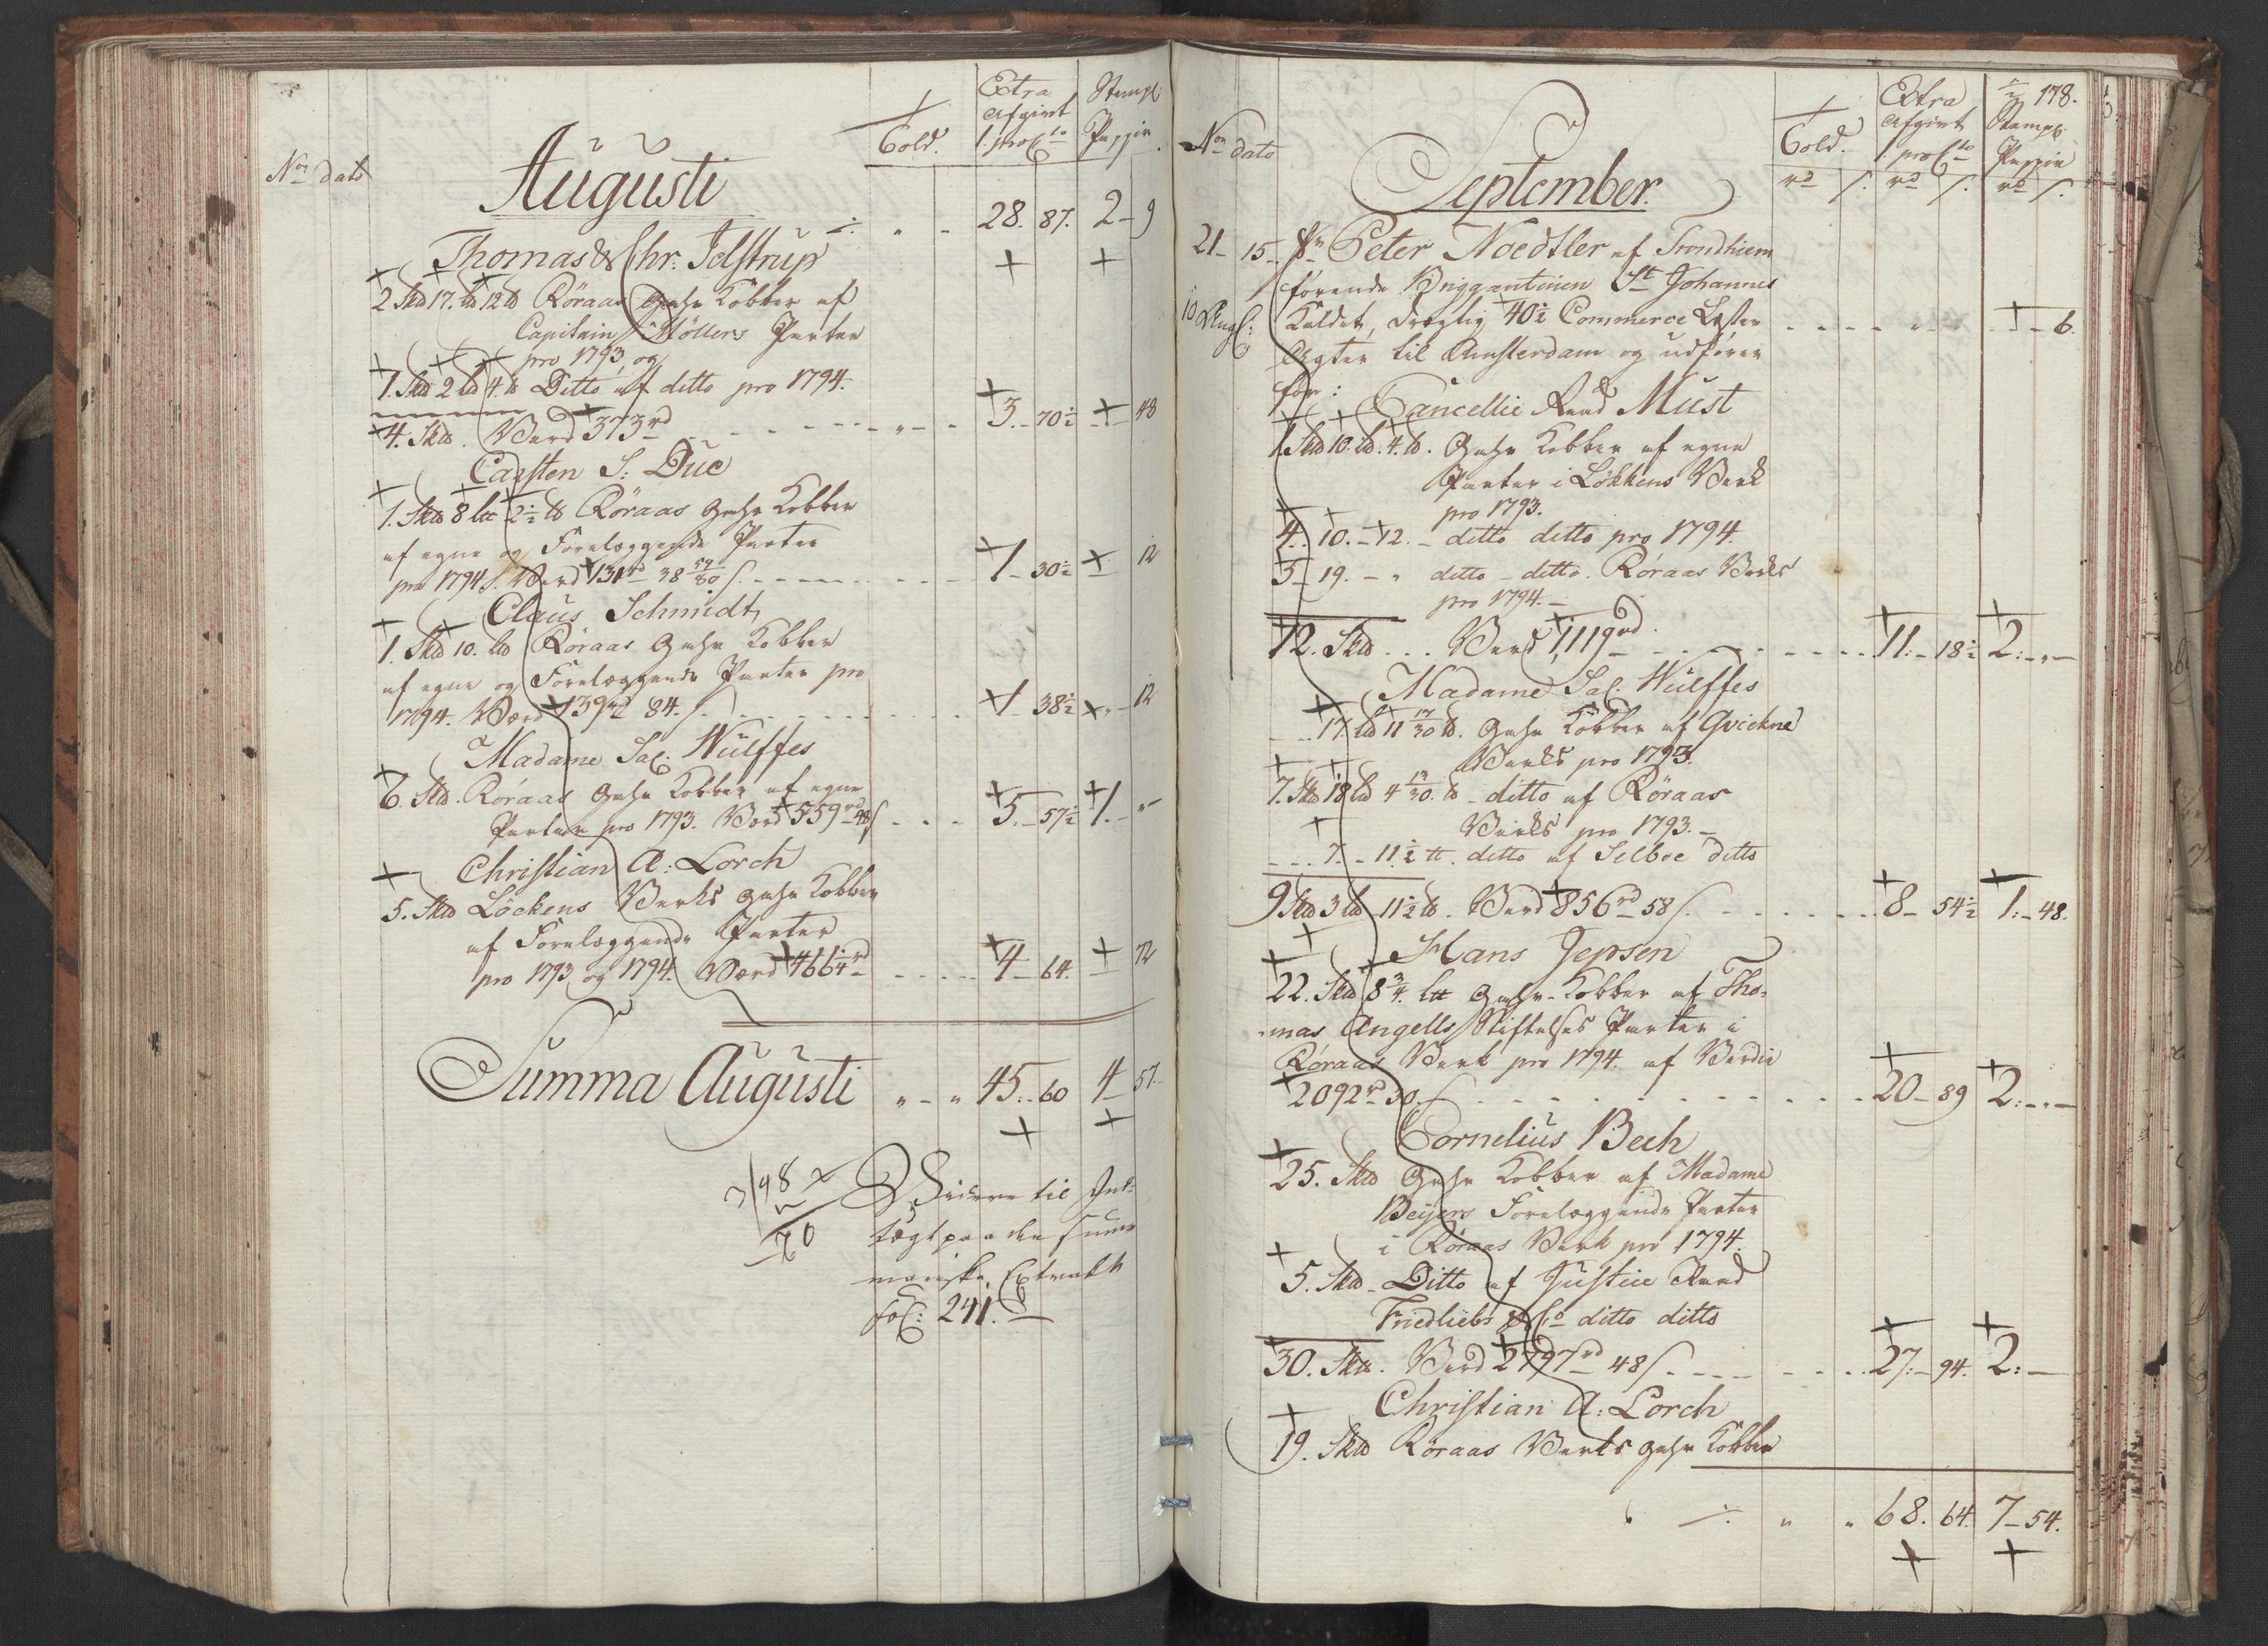 Extra Stempl:
Told. Afgivt Pappir
1. pro Cto
No dato
Augusti
28. 87. 2 - 9
Thomas & Chr: Jelstrup
2 Skd 17. Ld 12 ℔ Röraas Gahr Kobber af
Capitain Möllers Parter
pro 1793, og
1. Skd 2 Ld 4. ℔ Ditto af ditto pro 1794.
4. Skd. Værd 373 rd 3. - 70½ - 48
Carsten S: Due
1. Skd 8 Ltt 2½ ℔ Röraas Gahr Kobber
af egne og Forelæggende Parter
pro 1794. Værd 131 rd 38 s. 1 - 30½ 12
Claus Schmidt,
1. Skd 10. Ld Röraas Gahr Kobber
af egne og Forelæggende Parter pro
1794. Værd 139 rd 84. s. 1 38½ - 12
Madame Sal. Wülffes
6. Skd. Röraas Gahr Kobber af egne
Parter pro 1793. Værd 559 rd 48 s 5. - 57½ 1. -
Christian A: Lorch
5. Skd Löckens Verks Gahr Kobber
af Forelæggende Parter
pro 1793 og 1794. Værd 466¼ rd 4 - 64. 72
Summa Augusti " - " 45. - 60 4 - 57.
Videre til Ind-
tægt paa den Summa-
mariske Extract
Fol: 241.
÷ 178.
Extra
Told. Afgivt Stempl:
1 pro Cto Pappir
No dato
rd s. rd s. rd s.
September.
21 - 15 - Sr. Peter Noedtler af Trondhiem
førende Briggantinen St Johannes
10 Kaldet, drægtig 40½ Commerce Læster - 6.
Agter til Amsterdam og udfører
for:
Cancellie Raad Must
1 Skd 10. Ld. 4. ℔. Gahr Kobber af egne
Parter i Lökkens Verk
pro 1793.
4. 10. - 12. - ditto ditto pro 1794.
5 - 19. - " ditto - ditto. Röraas Verks
pro 1794. -
12. Skd ... Værd 1,119 rd. 11. - 18½ 2. -
Madame Sal. Wülffes
17. Ld 11 17/30 ℔. Gahr Kobber af Qvickne
Verks pro 1793.
7. Skd 18 Ld 4 13/30. ℔ - ditto af Röraas
Verks pro 1793. -
7. - 11½ tt. ditto af Selboe ditto
9 Skd 3 Ld 11½ ℔. Værd 856 rd 58 s. 8 - 54½ 1. - 48.
Hans Jepsen
22. Skd 8¾. Ltt Gahr-Kobber af Tho-
-mas Angells Stiftelses Parter i
Röraas Verk pro 1794. af Verdie
2092 rd 30. s 20 - 89 2. -
Cornelius Bech
25. Skd Gahr Kobber af Madame
Beÿers Forelæggende Parter
i Röraas Verk pro 1794.
5. Skd - Ditto af Justice Raad
Friedliebs & Co ditto ditto
30. Skd. Værd 2797 rd 48 s. 27. - 94. 2. -
Christian A: Lorch
19. Skd Röraas Verks Gahr Kobber
÷ " " 68. 64. 7 - 54.